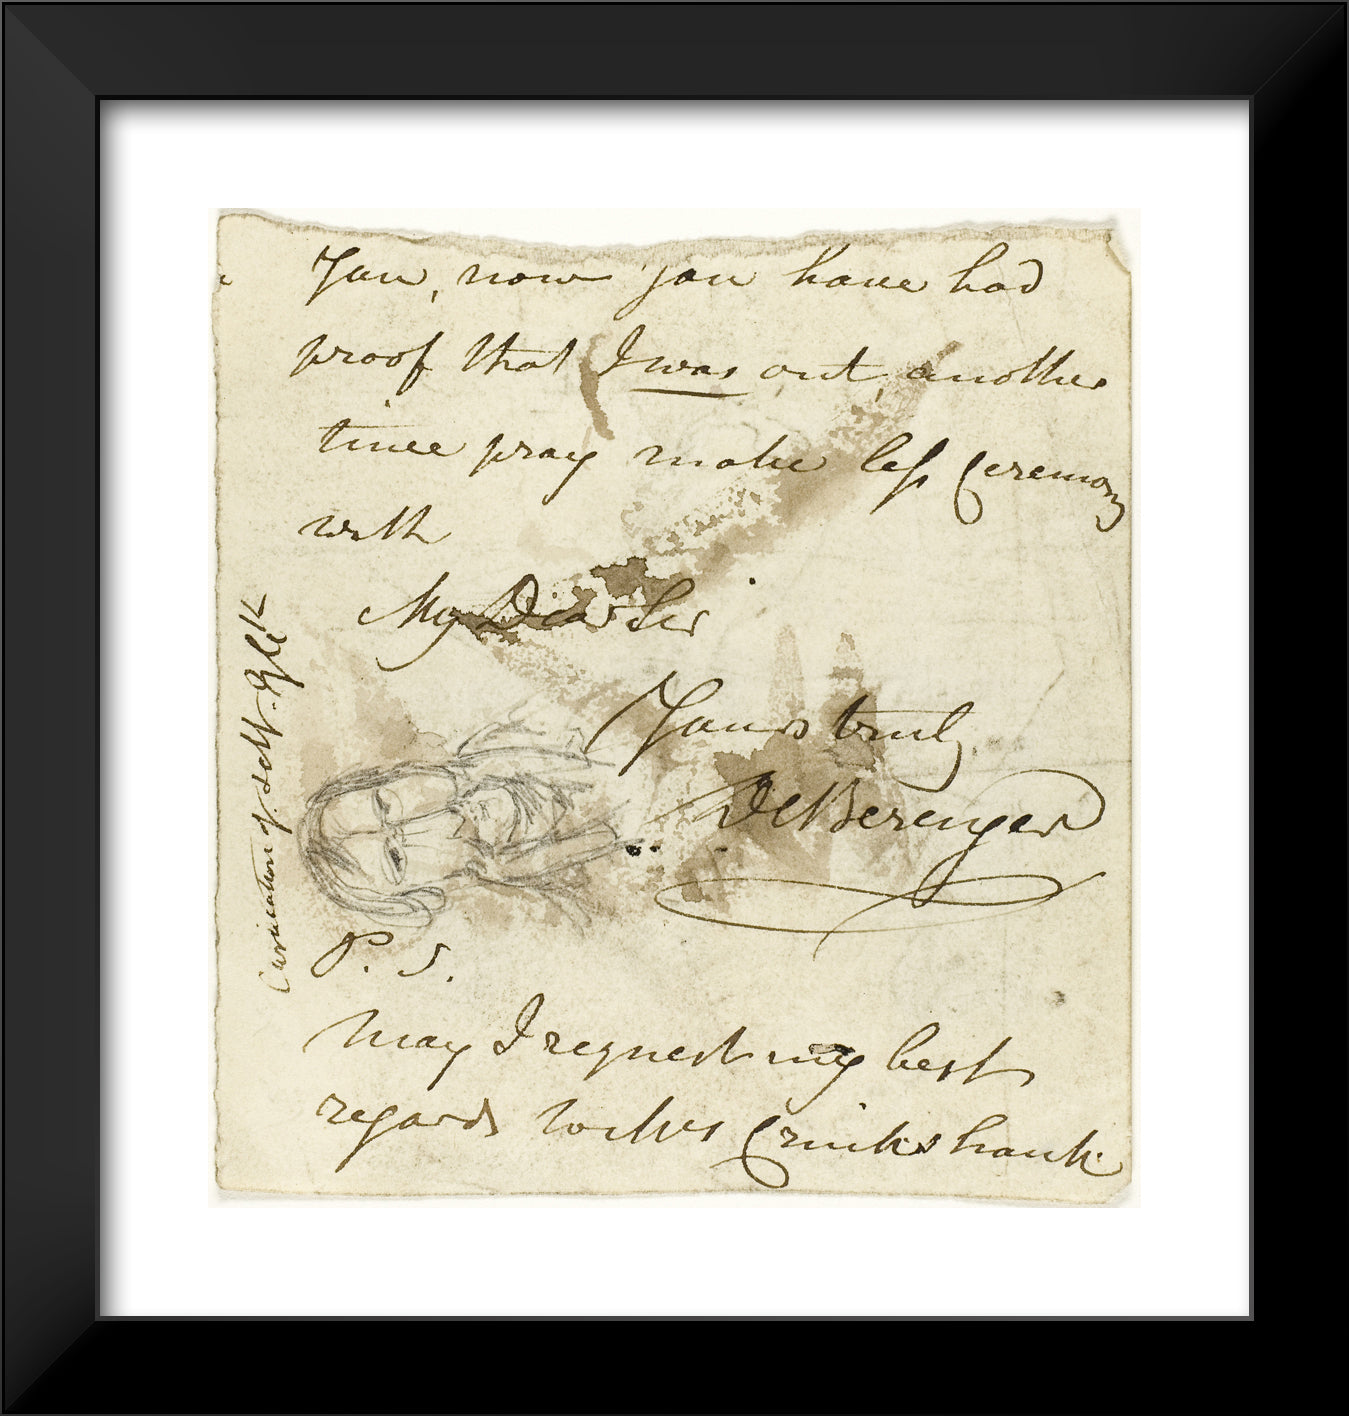 You, now you have had
proof that I was out, another
time pray make less Ceremony
with
My Dear Sir
Yours truly
De Berenger
P. S.
May I request my best
regards to Mrs Cruikshank
Caricature of self.